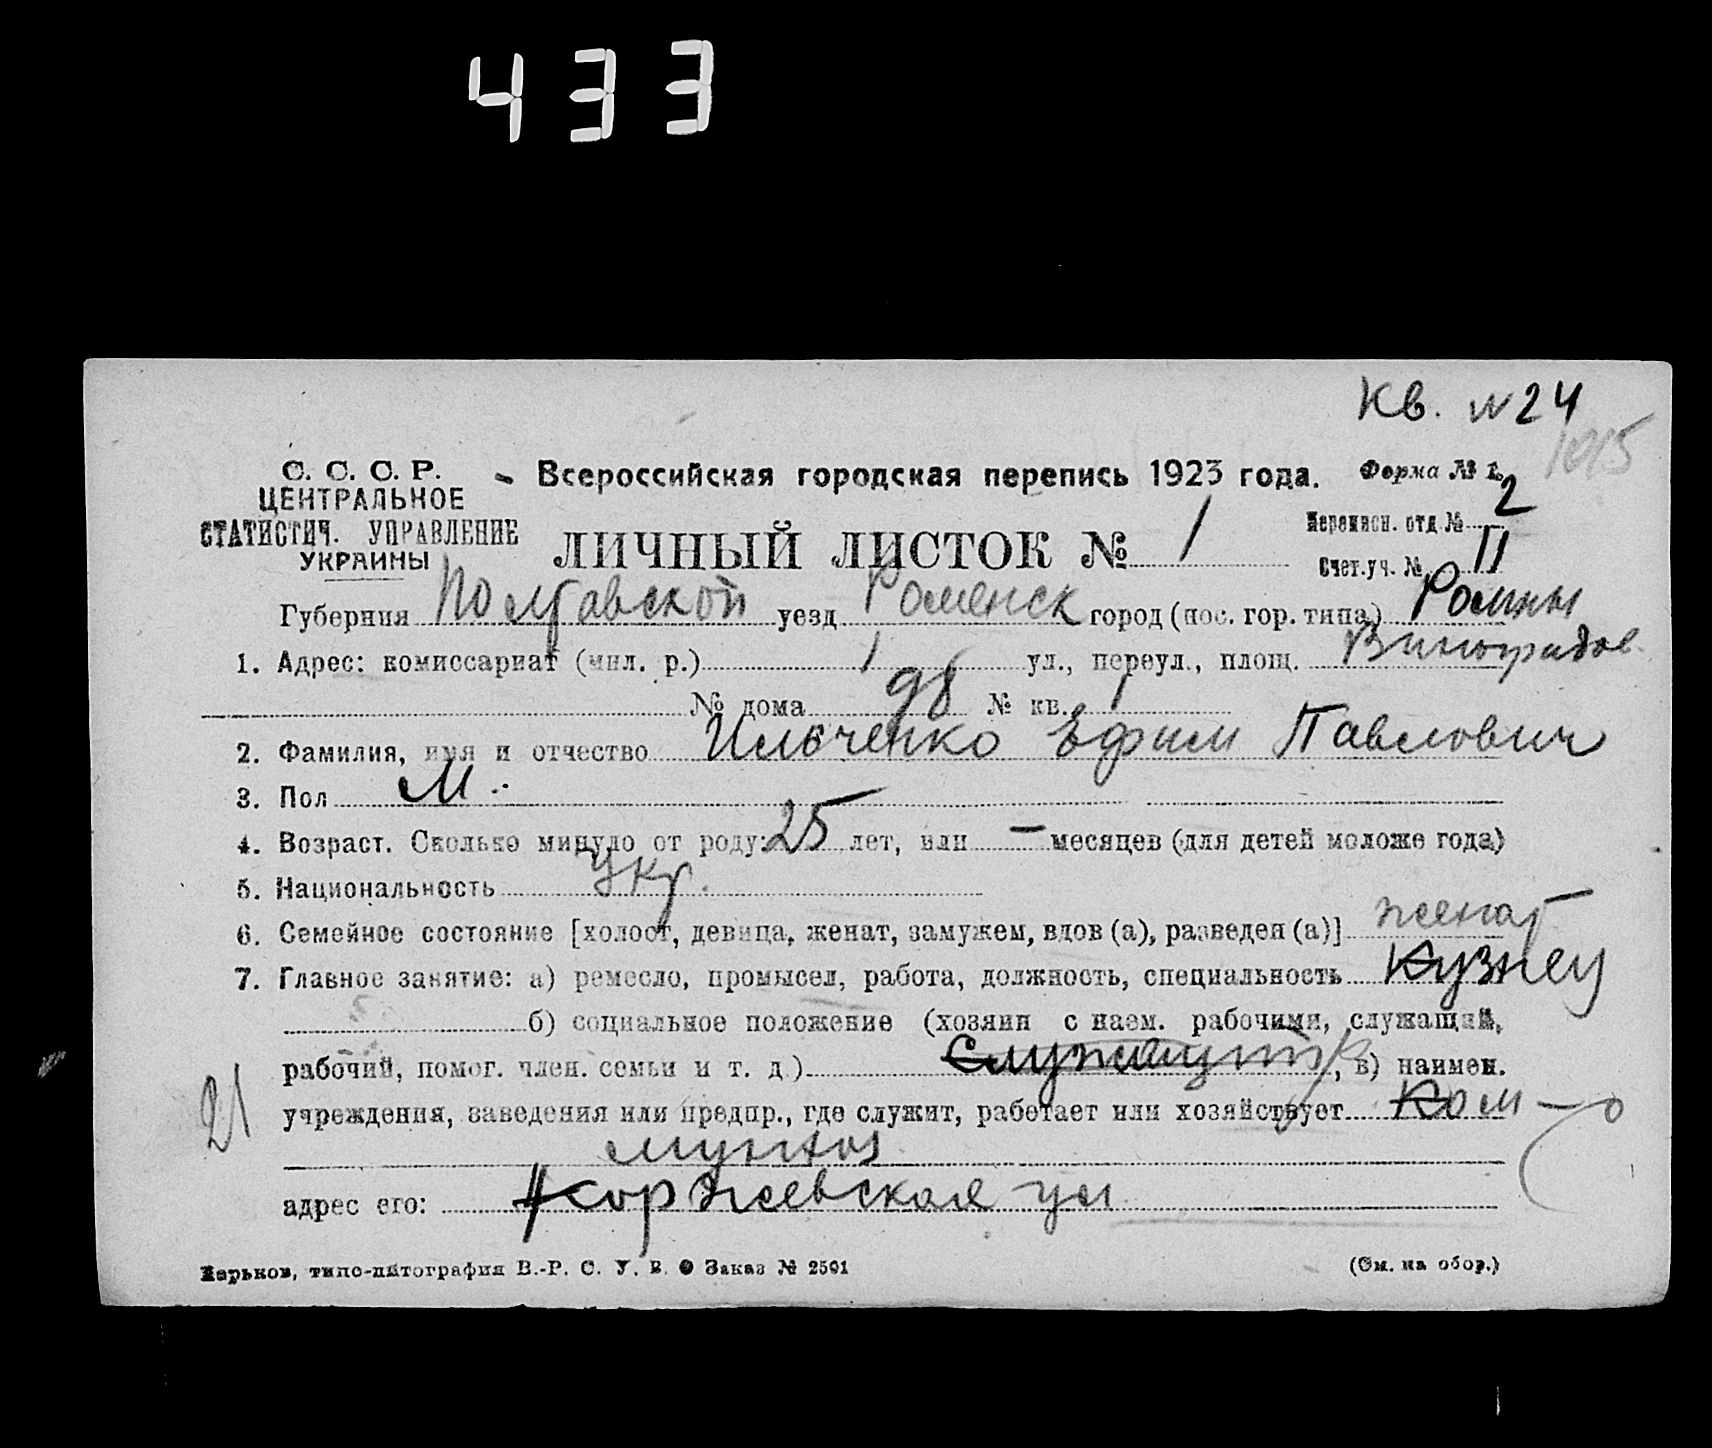 433
Кв. № 24
1015
С. С. С. Р.
ЦЕНТРАЛЬНОЕ
СТАТИСТИЧ. УПРАВЛЕНИЕ
УКРАИНЫ
Всероссийская городская перепись 1923 года.
Форма № 1.
ЛИЧНЫЙ ЛИСТОК № 1
Переписн. отд № 2
Счет.уч. № II
Губерния Полтавской уезд Роменск город (пос. гор. типа) Ромны
1. Адрес: комиссариат (мил. р.) 1 ул., переул., площ. Виноградов.
№ дома 98 № кв. 1
2. Фамилия, имя и отчество Ильченко Ефим Павлович
3. Пол М.
4. Возраст. Сколько минуло от роду: 25 лет, или — месяцев (для детей моложе года)
5. Национальность Укр.
6. Семейное состояние [холост, девица, женат, замужем, вдов (а), разведен (а)] женат
7. Главное занятие: а) ремесло, промысел, работа, должность, специальность Кузнец
б) социальное положение (хозяин с наем. рабочими, служащий,
рабочий, помог. член. семьи и т. д.) в) наимен.
21
учреждения, заведения или предпр., где служит, работает или хозяйствует Ком-
адрес его: Коржевская ул
Харьков, типо-литография В.-Р. С. У. В. Заказ № 2501
(См. на обор.)